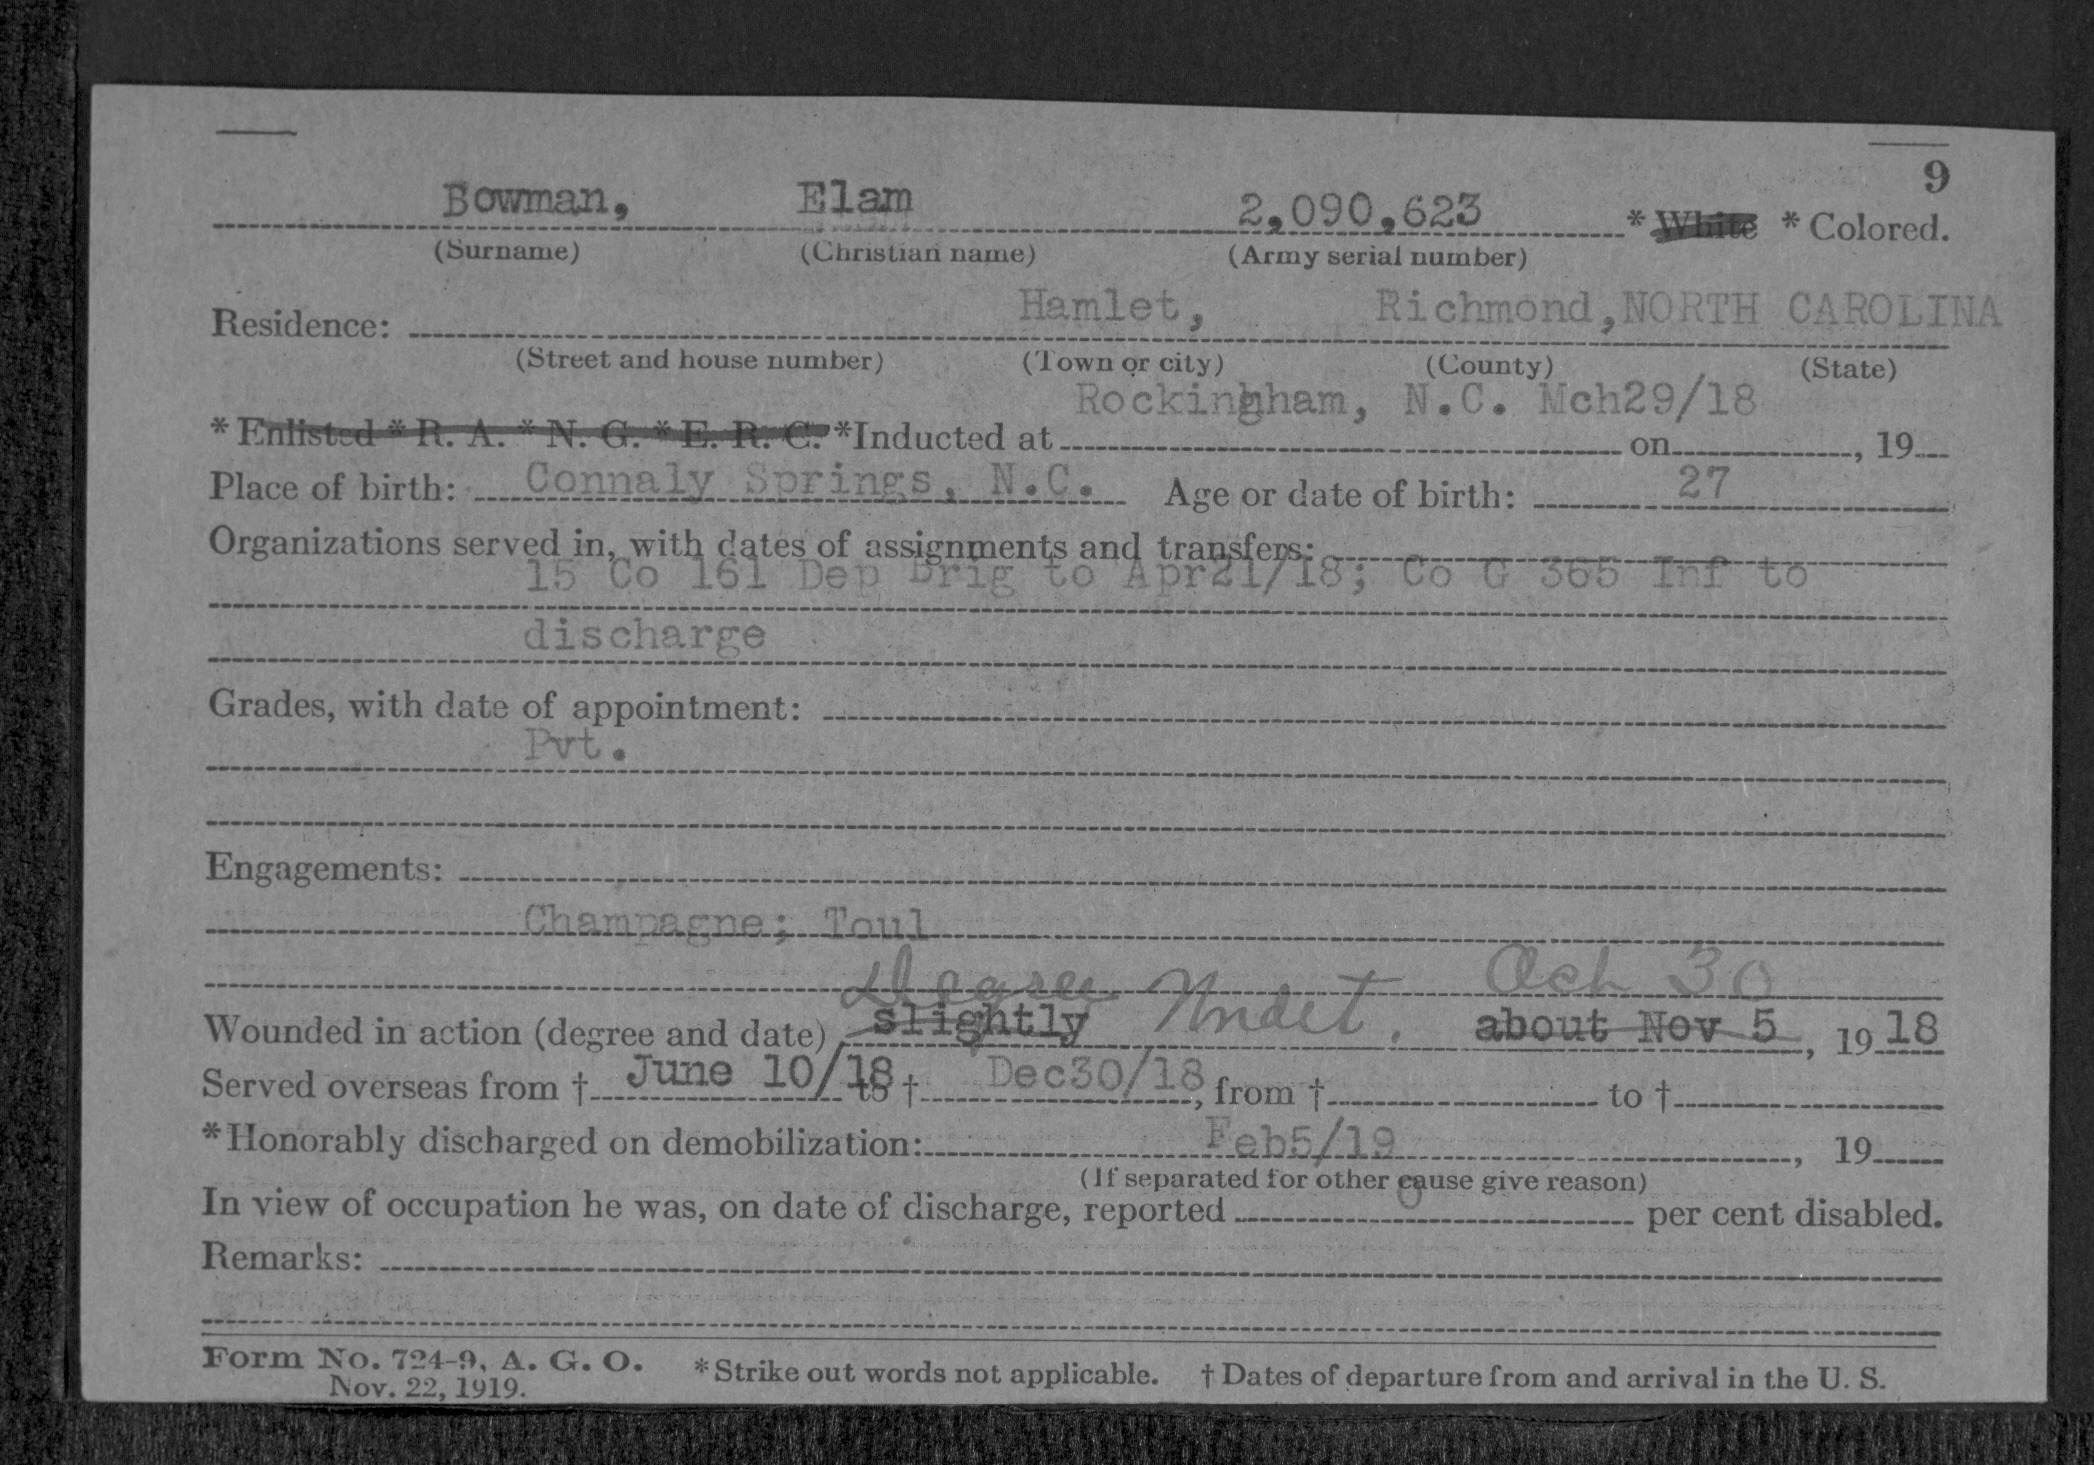 9
Bowman, Elam 2,090,623 * White * Colored.
(Surname) (Christian name) (Army serial number)
Hamlet, Richmond, NORTH CAROLINA
Residence:
(Street and house number) (Town or city) (County) (State)
Rockingham, N.C. Mch29/18
* Enlisted * R. A. * N. G. * E. R. C. *Inducted at on , 19
Place of birth: Connaly Springs, N.C. Age or date of birth: 27
Organizations served in, with dates of assignments and transfers:
15 Co 161 Dep Brig to Apr21/18; Co G 365 Inf to
discharge
Grades, with date of appointment:
Pvt.
Engagements:
Champagne; Toul
Degree Undet. Oct 30
Wounded in action (degree and date) slightly about Nov 5, 1918
Served overseas from † June 10/18 to † Dec30/18, from † to †
*Honorably discharged on demobilization: Feb5/19 , 19
(If separated for other cause give reason)
In view of occupation he was, on date of discharge, reported 0 per cent disabled.
Remarks:
Form No. 724-9, A. G. O. *Strike out words not applicable. † Dates of departure from and arrival in the U. S.
Nov. 22, 1919.